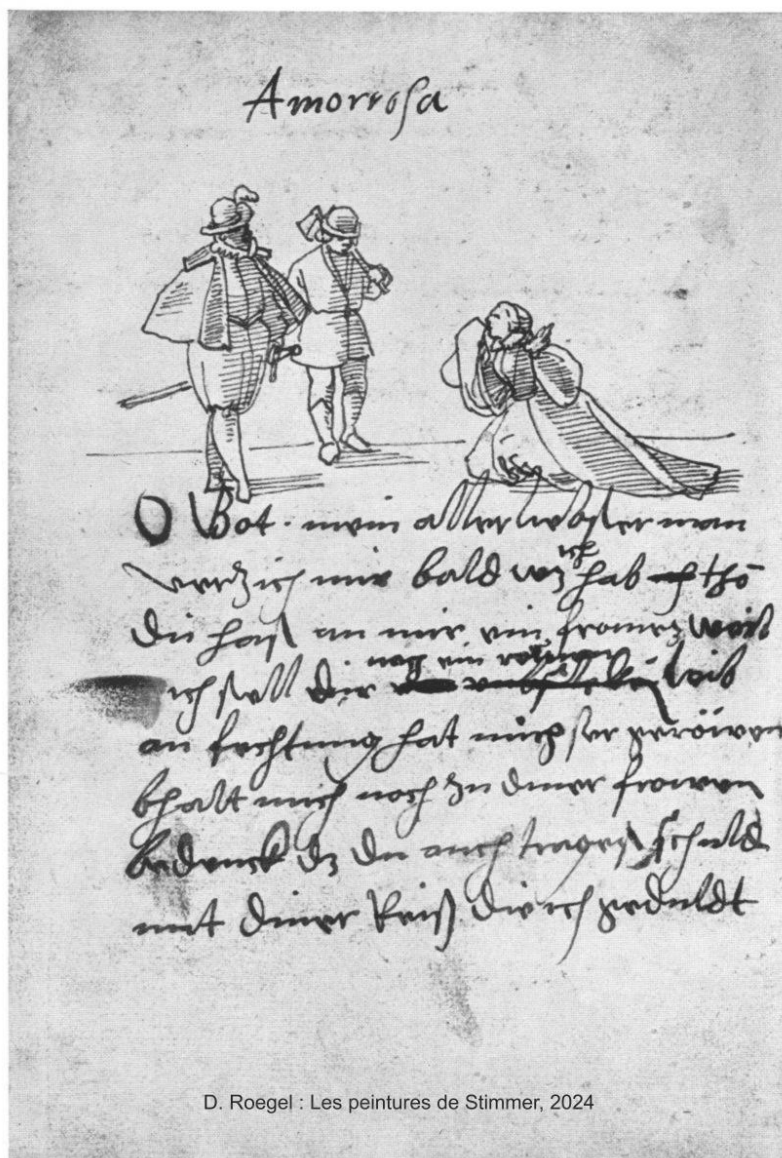 Amorrosa
O Got. mein aller liebster man
verzich mir bald wz ich hab thō
Du hast an mir ein fromez weib
ich soll dir noch ein leib
an fechtung hat mich ser geröiwen
bhalt mich noch zu diner frowen
bedenck dz du auch tragest schuld
mit diner Reiß die ich geduldt
D. Roegel : Les peintures de Stimmer, 2024